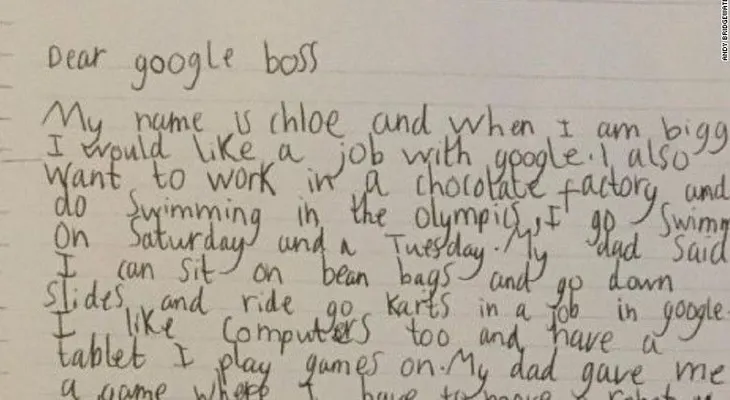 Dear google boss
My name is chloe and when I am bigg
I would like a job with google. I also
want to work in a chocolate factory and
do swimming in the olympics, I go swimm
on Saturday and a Tuesday. My dad said
I can sit on bean bags and go down
slides and ride go karts in a job in google.
I like computers too and have a
tablet I play games on. My dad gave me
a game where I have to move a robot
ANDY BRIDGEWATE